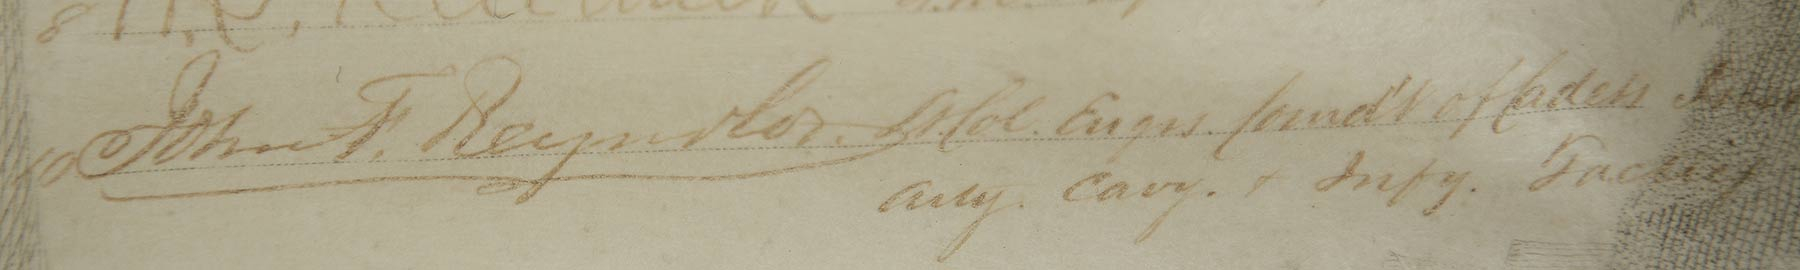 John F. Reynolds. Lt. Col. Engrs. Comd't of Cadets
Arty. Cavy. & Infy. Tactics